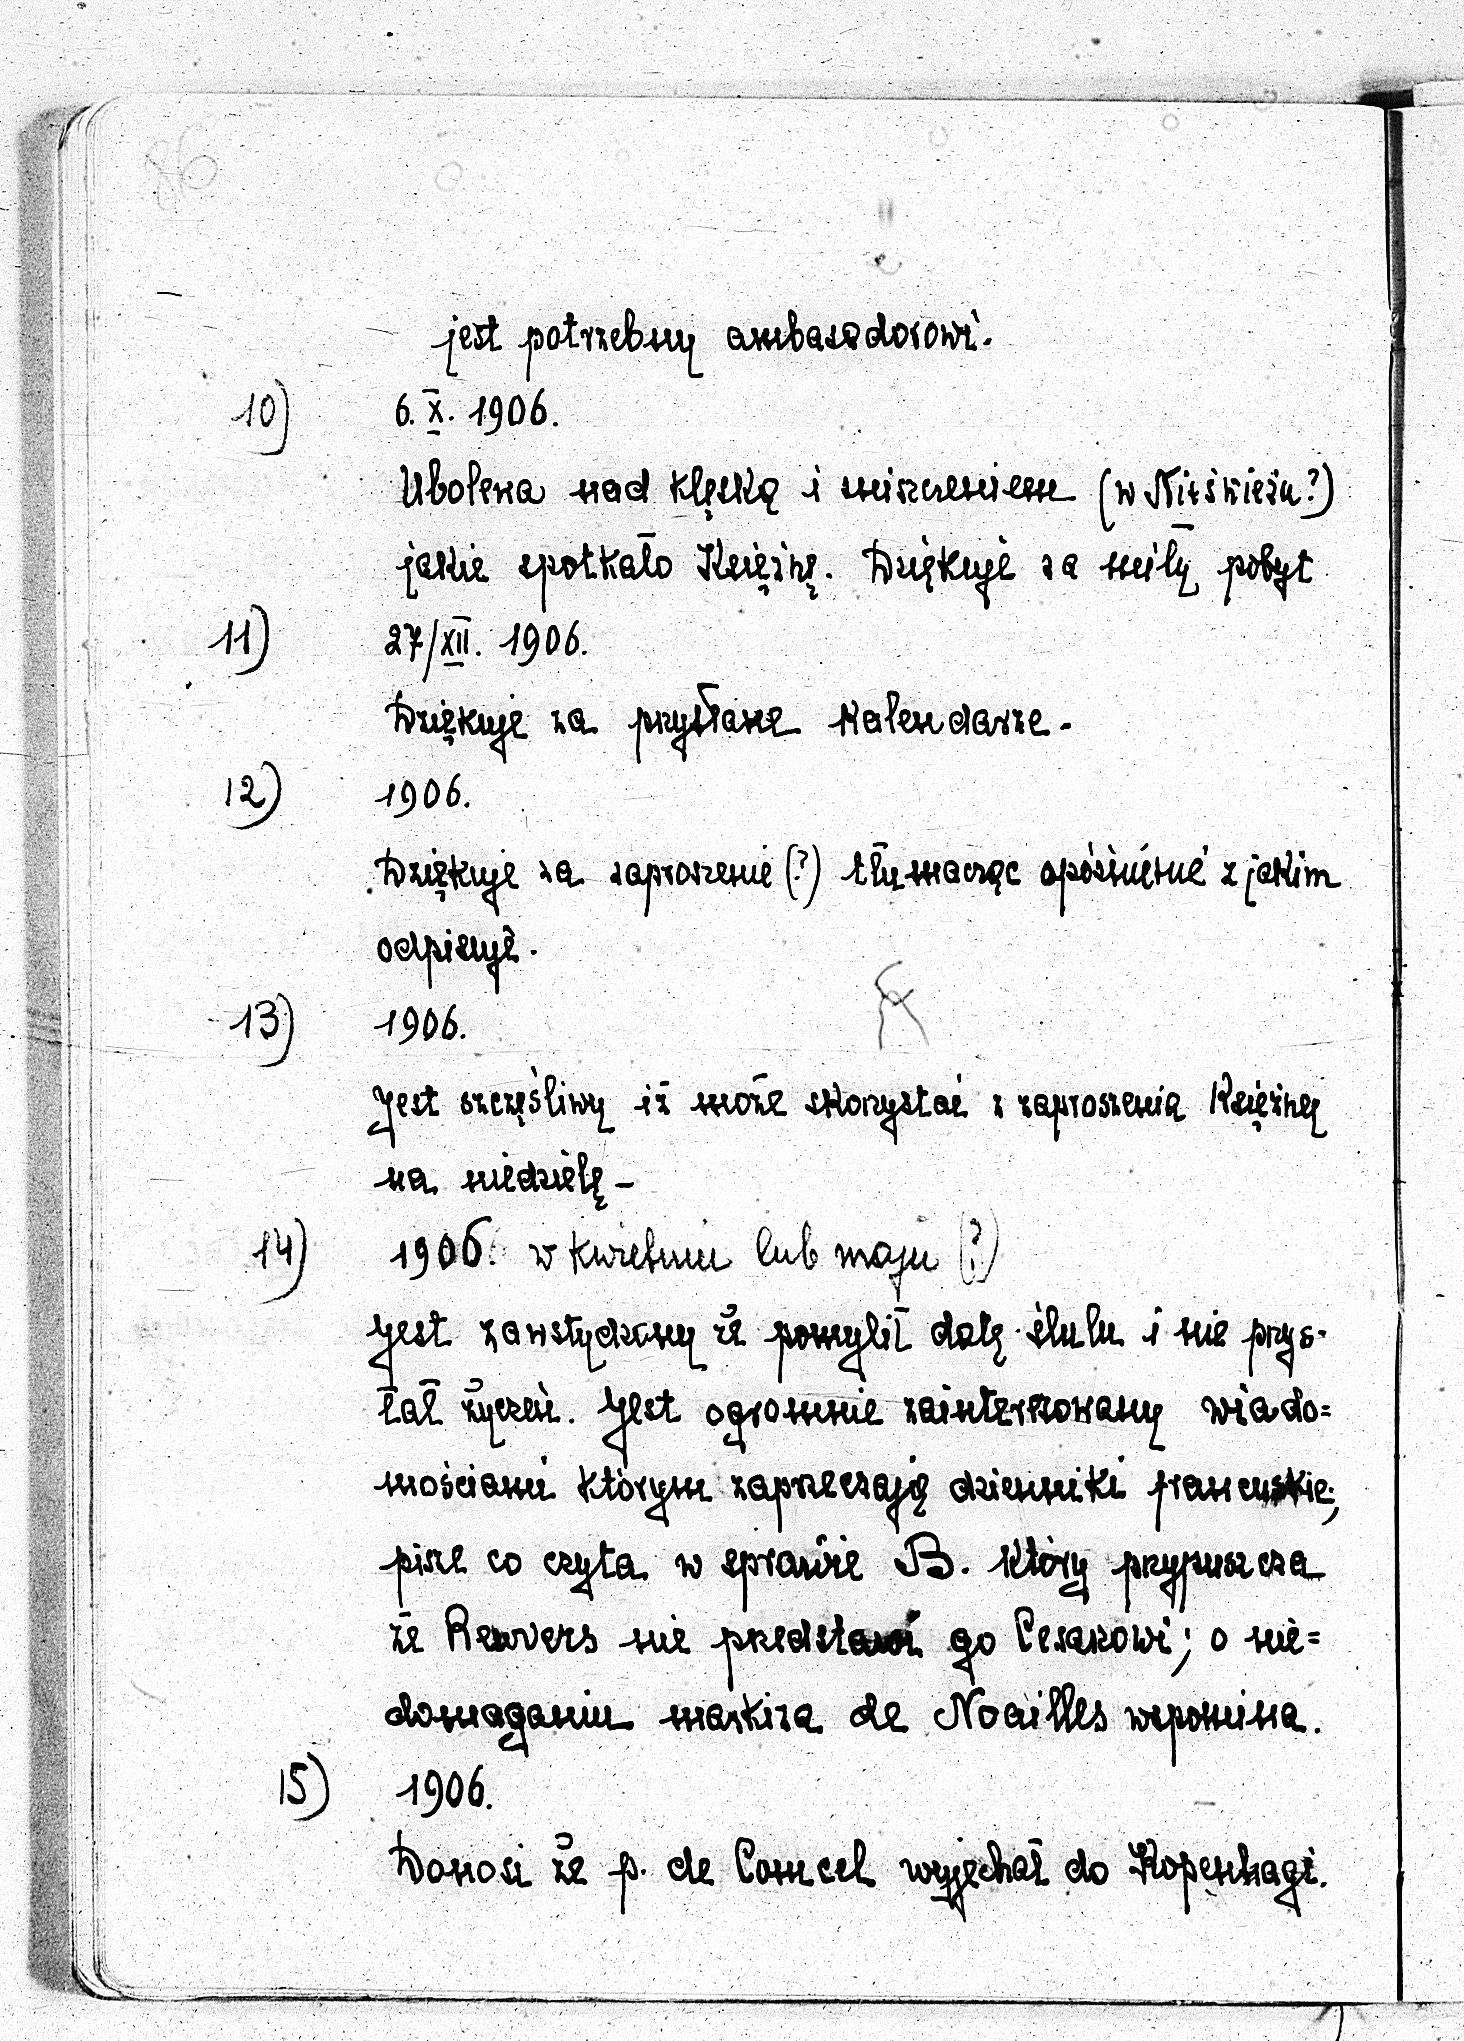 jest potrzebny ambasadorowi.
10) 6. X. 1906.
Ubolewa nad klęską i zniszczeniem (w Nieświeżu?)
jakie spotkało Księżnę. Dziękuje za miły pobyt
11) 27/XII. 1906.
Dziękuje za przysłane kalendarze.
12) 1906.
Dziękuje za zaproszenie (?) tłumacząc opóźnienie z jakim
odpisuje.
13) 1906.
Jest szczęśliwy iż może skorzystać z zaproszenia Księżnej
na niedzielę –
14) 1906. w kwietniu lub maju (?)
Jest zawstydzony że pomylił datę ślubu i nie przys-
łał życzeń. Jest ogromnie zainteresowany wiado=
mościami którym zaprzeczają dzienniki francuskie;
pisze co czyta w sprawie B. który przypuszcza
że Renvers nie przedstawi go Cesarzowi; o nie=
domaganiu markiza de Noailles wspomina.
15) 1906.
Donosi że p. de Comcel wyjechał do Kopenhagi.